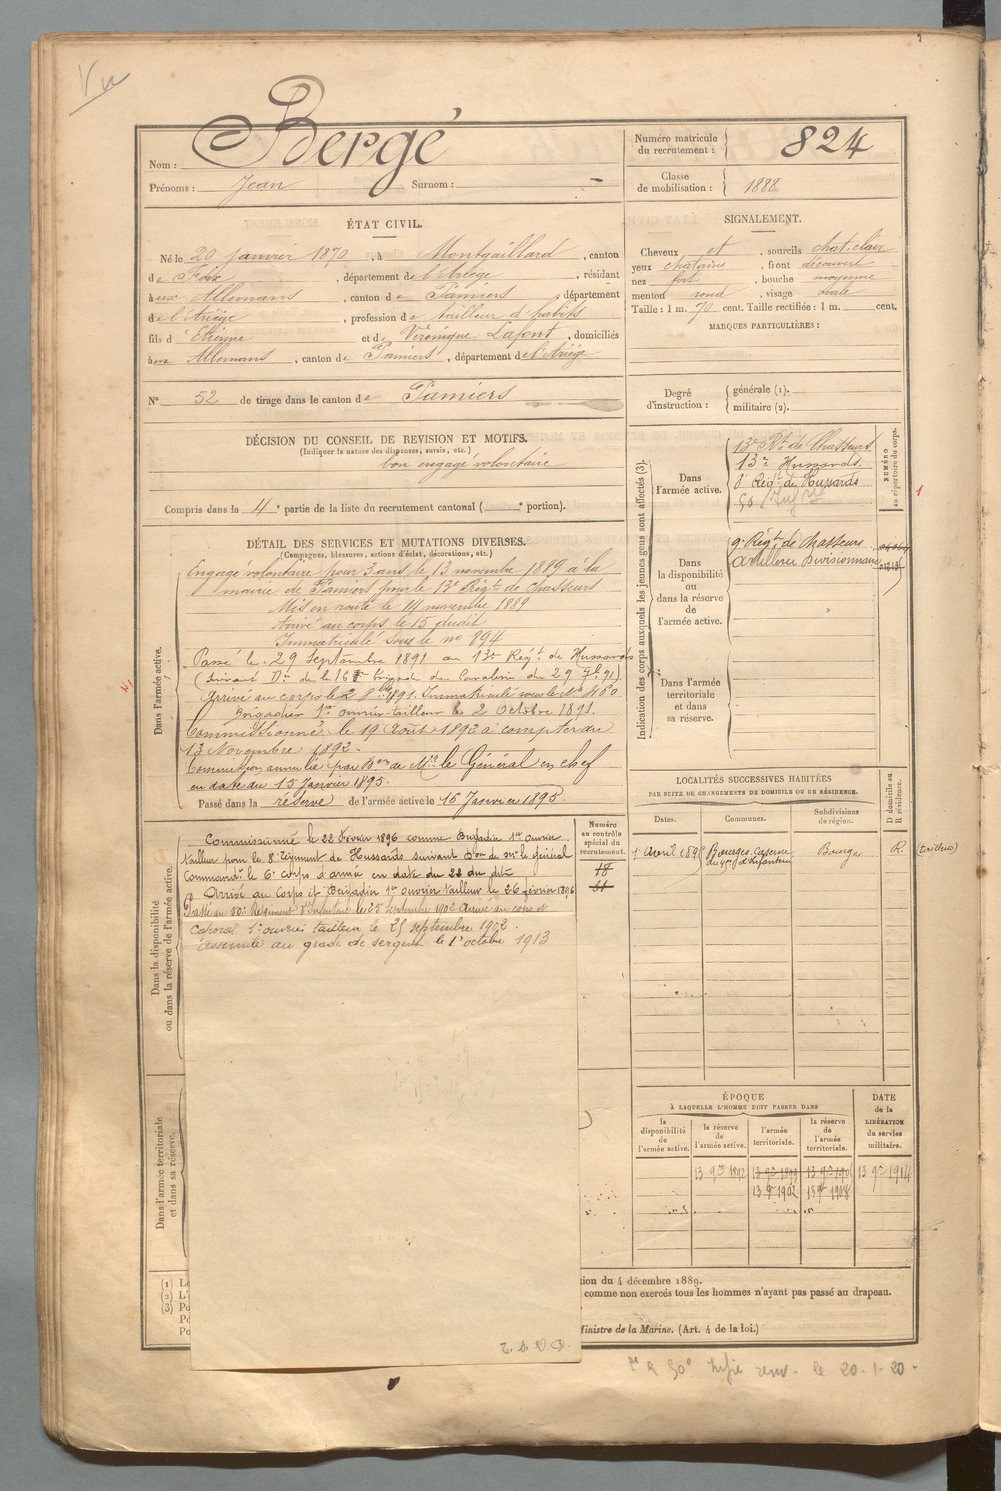 Vu
Nom : Bergé
Prénoms : Jean Surnom : –
Numéro matricule du recrutement : 824
Classe de mobilisation : 1888
ÉTAT CIVIL.
Né le 20 janvier 1870, à Montgaillard, canton
de Foix, département de l'Ariège, résidant
à aux Allemans, canton de Pamiers, département
de l'Ariège, profession de tailleur d'habits
fils d' Etienne et de Véronique Lafont, domiciliés
à aux Allemans, canton de Pamiers, département de l'Ariège
N° 52 de tirage dans le canton de Pamiers
SIGNALEMENT.
Cheveux et, sourcils chat. clair
yeux chatains, front découvert
nez fort, bouche moyenne
menton rond, visage ovale
Taille : 1 m. 70 cent. Taille rectifiée : 1 m. cent.
MARQUES PARTICULIÈRES :
Degré d'instruction : générale (1).
militaire (2).
DÉCISION DU CONSEIL DE REVISION ET MOTIFS.
(Indiquer la nature des dispenses, sursis, etc.)
bon engagé volontaire
Compris dans la 4e partie de la liste du recrutement cantonal ( e portion).
DÉTAIL DES SERVICES ET MUTATIONS DIVERSES.
(Campagnes, blessures, actions d'éclat, décorations, etc.)
Dans l'armée active.
Engagé volontaire pour 3 ans le 13 novembre 1889 à la
mairie de Pamiers pour le 13e Régt de Chasseurs
Mis en route le 14 novembre 1889
Arrivé au corps le 15 dudit
Immatriculé sous le no 894
Passé le 29 Septembre 1891 au 13e Régt de Hussards
(suivant Don de la 16e brigade de Cavalerie du 29 7bre 91)
Arrivé au corps le 2 8bre 1891. Immatriculé sous le No 460
Brigadier 1er ouvrier-tailleur le 2 Octobre 1891.
Commissionné le 19 Août 1892 à compter du
13 Novembre 1892.
Commission annulée par Don de Mr le Général en chef
en date du 15 Janvier 1895.
Passé dans la réserve de l'armée active le 16 Janvier 1895.
Dans la disponibilité ou dans la réserve de l'armée active.
Commissionné le 22 Février 1896 comme Brigadier 1er ouvrier
tailleur pour le 8e Régiment de Hussards suivant Don de Mr le Général
Commandt le 6e corps d'armée en date du 22 du dit
Arrivé au Corps et Brigadier 1er ouvrier tailleur le 26 février 1896
Passé au 50e Régiment d'Infanterie le 25 Septembre 1902 Arrivé au corps et
caporal 1er ouvrier tailleur le 25 septembre 1902.
assimilé au grade de sergent le 1er octobre 1913
T. S. V. P.
Numéro au contrôle spécial du recrutement.
Dans l'armée territoriale et dans sa réserve.
Indication des corps auxquels les jeunes gens sont affectés (3).
NUMÉRO au répertoire du corps.
Dans l'armée active.
13e Rt de Chasseurs
13e Hussards.
8e Régt de Hussards
50 Infrie
1
Dans la disponibilité ou dans la réserve de l'armée active.
9e Régt de Chasseurs
Artillerie Divisionnaire
Dans l'armée territoriale et dans sa réserve.
LOCALITÉS SUCCESSIVES HABITÉES
PAR SUITE DE CHANGEMENTS DE DOMICILE OU DE RÉSIDENCE.
D domicile ou R résidence.
Dates. Communes. Subdivisions de région.
Bourges, Caserne du 95e d'Infanterie Bourges R. (tailleur)
ÉPOQUE
À LAQUELLE L'HOMME DOIT PASSER DANS
la disponibilité de l'armée active. la réserve de l'armée active. l'armée territoriale. la réserve de l'armée territoriale.
DATE de la LIBÉRATION du service militaire.
13 9bre 1892 13 9bre 1899 13 9bre 190 13 9bre 1914
13 9bre 1902 13 9bre 1908
(1) Le
(2) L'
(3) Po
Po
Po
tion du 4 décembre 1889.
comme non exercés tous les hommes n'ayant pas passé au drapeau.
Ministre de la Marine. (Art. 4 de la loi.)
R 50e Infie renv. le 20-1-20-